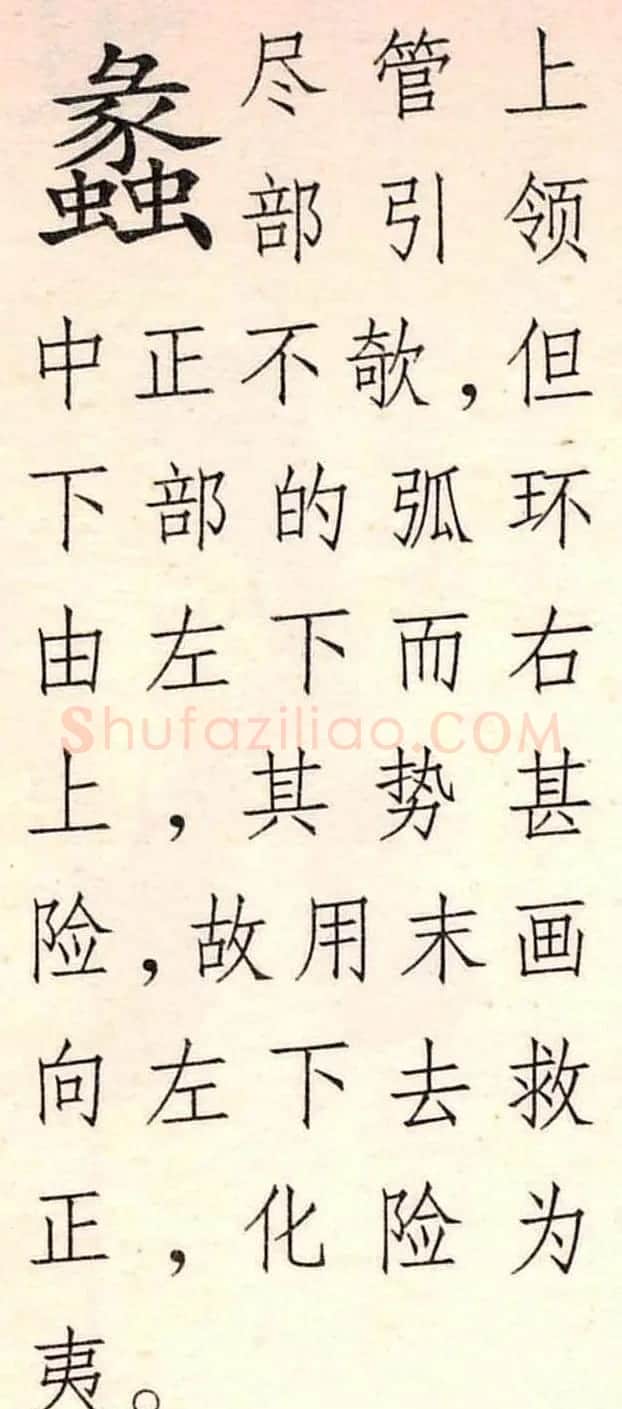 蠡
尽管上
部引领
中正不欹，但
下部的弧环
由左下而右
Shufaziliao.COM
上，其势甚
险，故用末画
向左下去救
正，化险为
夷。